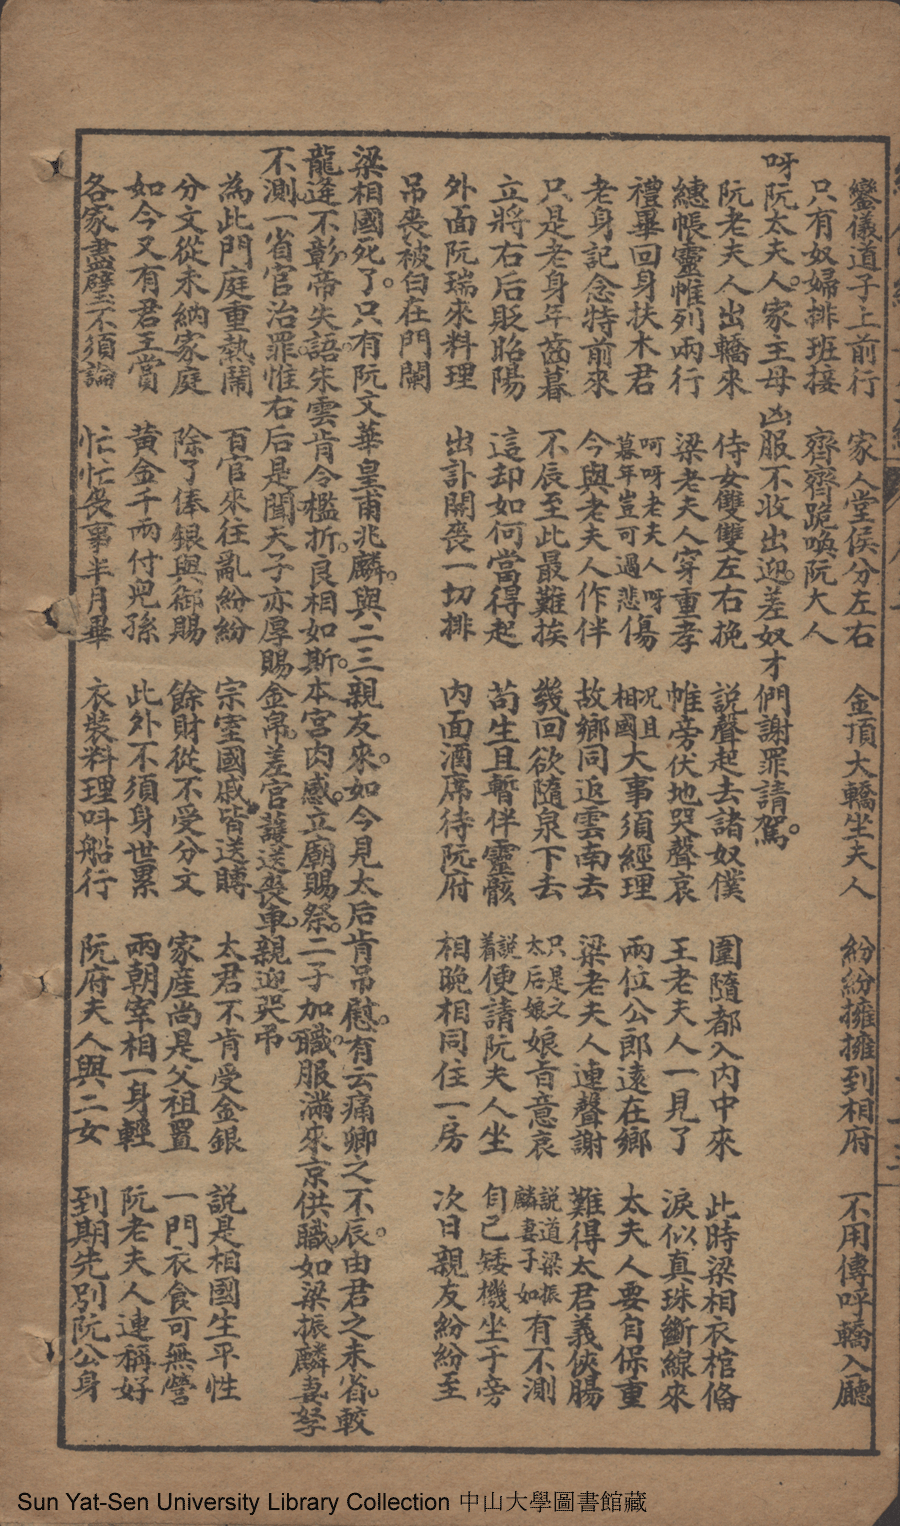 鑾儀道子上前行　家人堂侯分左右　金頂大轎坐夫人　紛紛擁擁到相府　不用傳呼轎入廳
只有奴婦排班接　齊齊跪喚阮大人
呀阮太夫人。家主母凶服不收出迎。差奴才們謝罪請駕。
阮老夫人出轎來　侍女雙雙左右挽　說聲起去諸奴僕　圍隨都入內中來　此時梁相衣棺俻
繐帳靈帷列兩行　梁老夫人穿重孝　帷旁伏地哭聲哀　王老夫人一見了　淚似真珠斷線來
禮畢回身扶木君　呵呀老夫人呀暮年豈可過悲傷　况且相國大事須經理　兩位公郎遠在鄉　太夫人要自保重
老身記念特前來　今與老夫人作伴　故鄉同返雲南去　梁老夫人連聲謝　難得太君義俠腸
只是老身年齒暮　不辰至此最難挨　幾回欲隨泉下去　只是之太后娘娘旨意哀　說道梁振麟妻子如有不測
立將右后貶昭陽　這却如何當得起　苟生且暫伴靈骸　說着便請阮夫人坐　自己矮機坐于旁
外面阮瑞來料理　出訃開喪一切排　內面酒席待阮府　相晚相同住一房　次日親友紛紛至
吊喪被白在門闌
梁相國死了。只有阮文華皇甫兆麟。與二三親友來。如今見太后肯吊慰。有云痛卿之不辰。由君之未省。較
龍逄不彰。帝失語。朱雲肯令檻折。良相如斯。本宮肉感。立廟賜祭。二子加職。服滿來京供職。如梁振麟妻孥
不測。一省官治罪。惟右后是聞。天子亦厚賜金帛。差官護送喪車。親迎哭吊。
為此門庭重熱鬧　百官來往亂紛紛　宗室國戚皆送賻　太君不肯受金銀　說是相國生平性
分文從未納家庭　除了俸銀與御賜　餘財從不受分文　家産尚是父祖置　一門衣食可無營
如今又有君王賞　黃金千兩付兒孫　此外不須身世累　兩朝宰相一身輕　阮老夫人連稱好
各家盡璧不須論　忙忙喪事半月畢　衣裝料理呌船行　阮府夫人與二女　到期先別阮公身
Sun Yat-Sen University Library Collection 中山大學圖書館藏